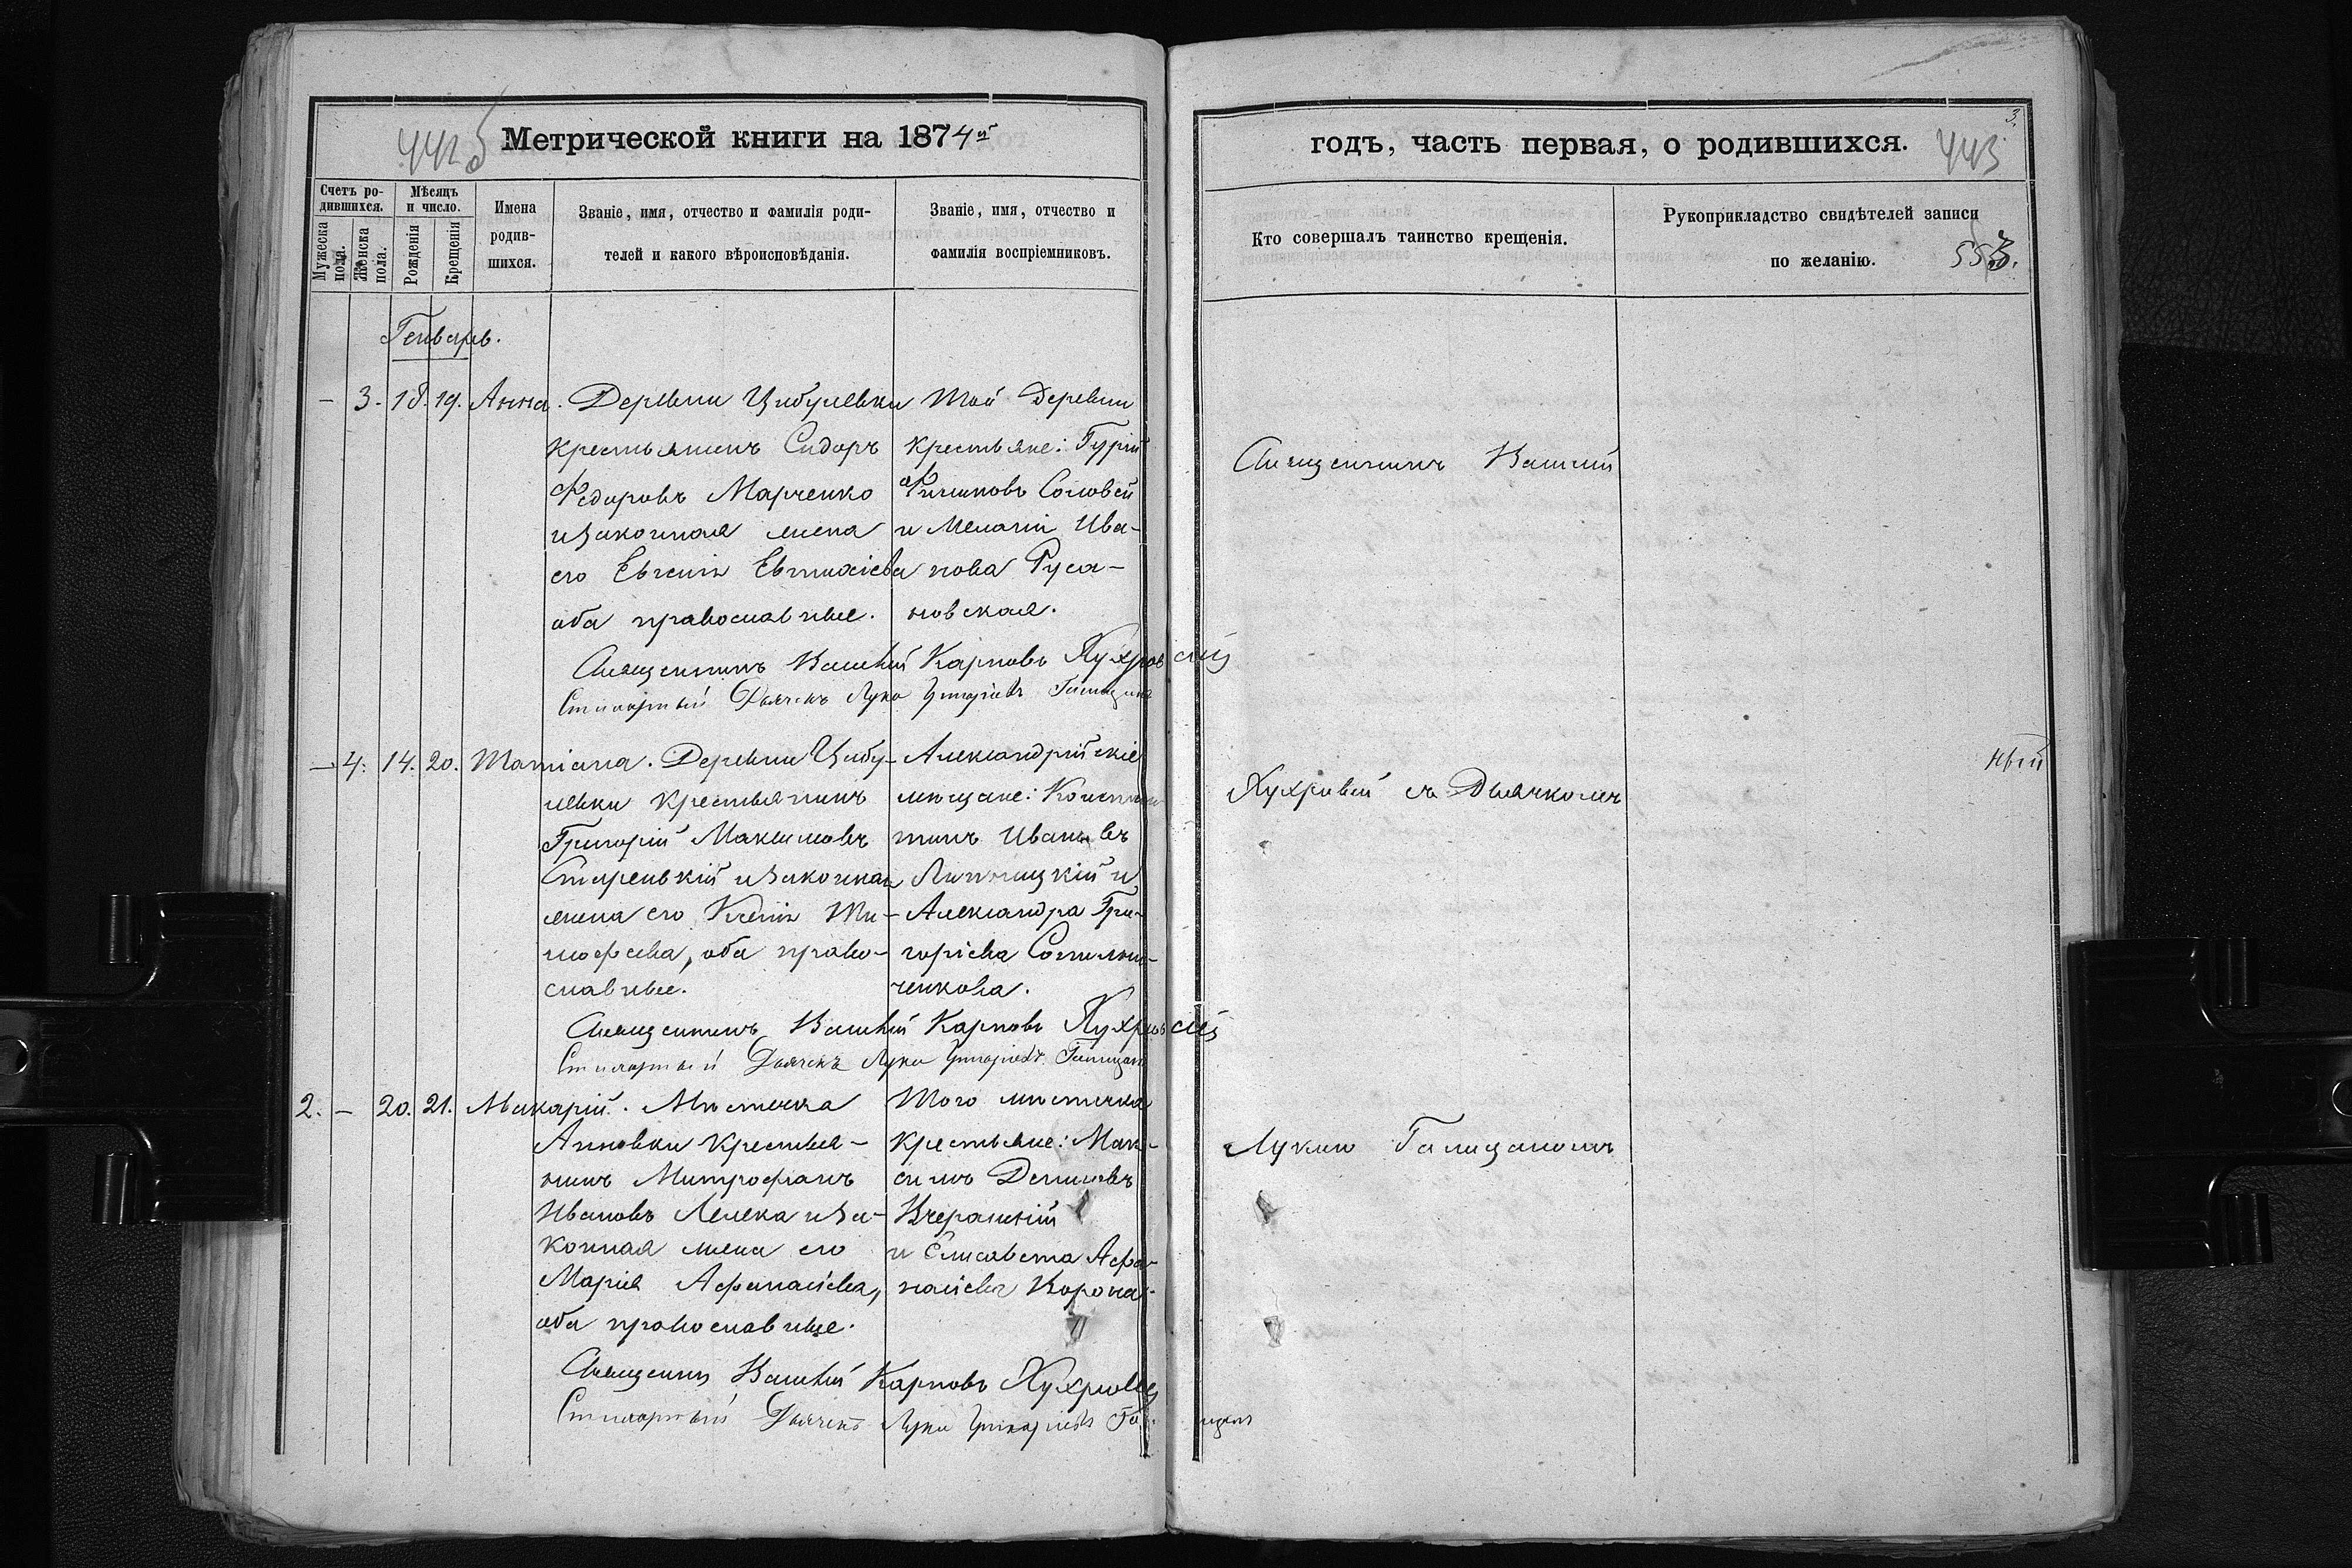 442 б
Метрической книги на 1874й
Счетъ ро-
дившихся.
Мужеска пола.
Женска пола.
Мѣсяцъ
и число.
Рожденія
Крещенія
Имена
родив-
шихся.
Званіе, имя, отчество и фамилія роди-
телей и какого вѣроисповѣданія.
Званіе, имя, отчество и
фамилія воспріемниковъ.
Генварь.
— 3. 18. 19. Анна. Деревни Цибулевки
крестьянинъ Сидоръ
Федоровъ Марченко
и законная жена
его Евгенія Евтихіева
оба православные.
Той деревни
крестьяне: Гурій
Филиповъ Соловей
и Меланія Ива-
нова Руса-
новская.
Священникъ Василій Карповъ Яухровскій
Стихарный Дьячекъ Лука Григоріевъ Галицанъ
— 4. 14. 20. Татіана. Деревни Цибу-
левки крестьянинъ
Григорій Максимовъ
Старенькій и законная
жена его Ксенія Ти-
мофеева, оба право-
славные.
Александрійскіе
мещане: Констан-
тинъ Ивановъ
Липницкій и
Александра Гри-
горіева Сотни-
ченкова.
Священникъ Василій Карповъ Яухровскій
Стихарный Дьячекъ Лука Григоріевъ Галицанъ
2. — 20. 21. Макарій. Мѣстечка
Анновки крестья-
нинъ Митрофанъ
Ивановъ Лелека и за-
конная жена его
Марія Афанасіева,
оба православные.
Того мѣстечка
крестьяне: Мак-
симъ Денисовъ
Вчерашній
и Елисавета Афа-
насіева Ворона-
Священникъ Василій Карповъ Яухровскій
Стихарный Дьячекъ Лука Григоріевъ Галицанъ
3.
годъ, часть первая, о родившихся.
443
Кто совершалъ таинство крещенія.
Рукоприкладство свидѣтелей записи
по желанію.
553.
Священникъ Василій
Яухровскій съ Дьячкомъ
Лукою Галицаномъ
ный